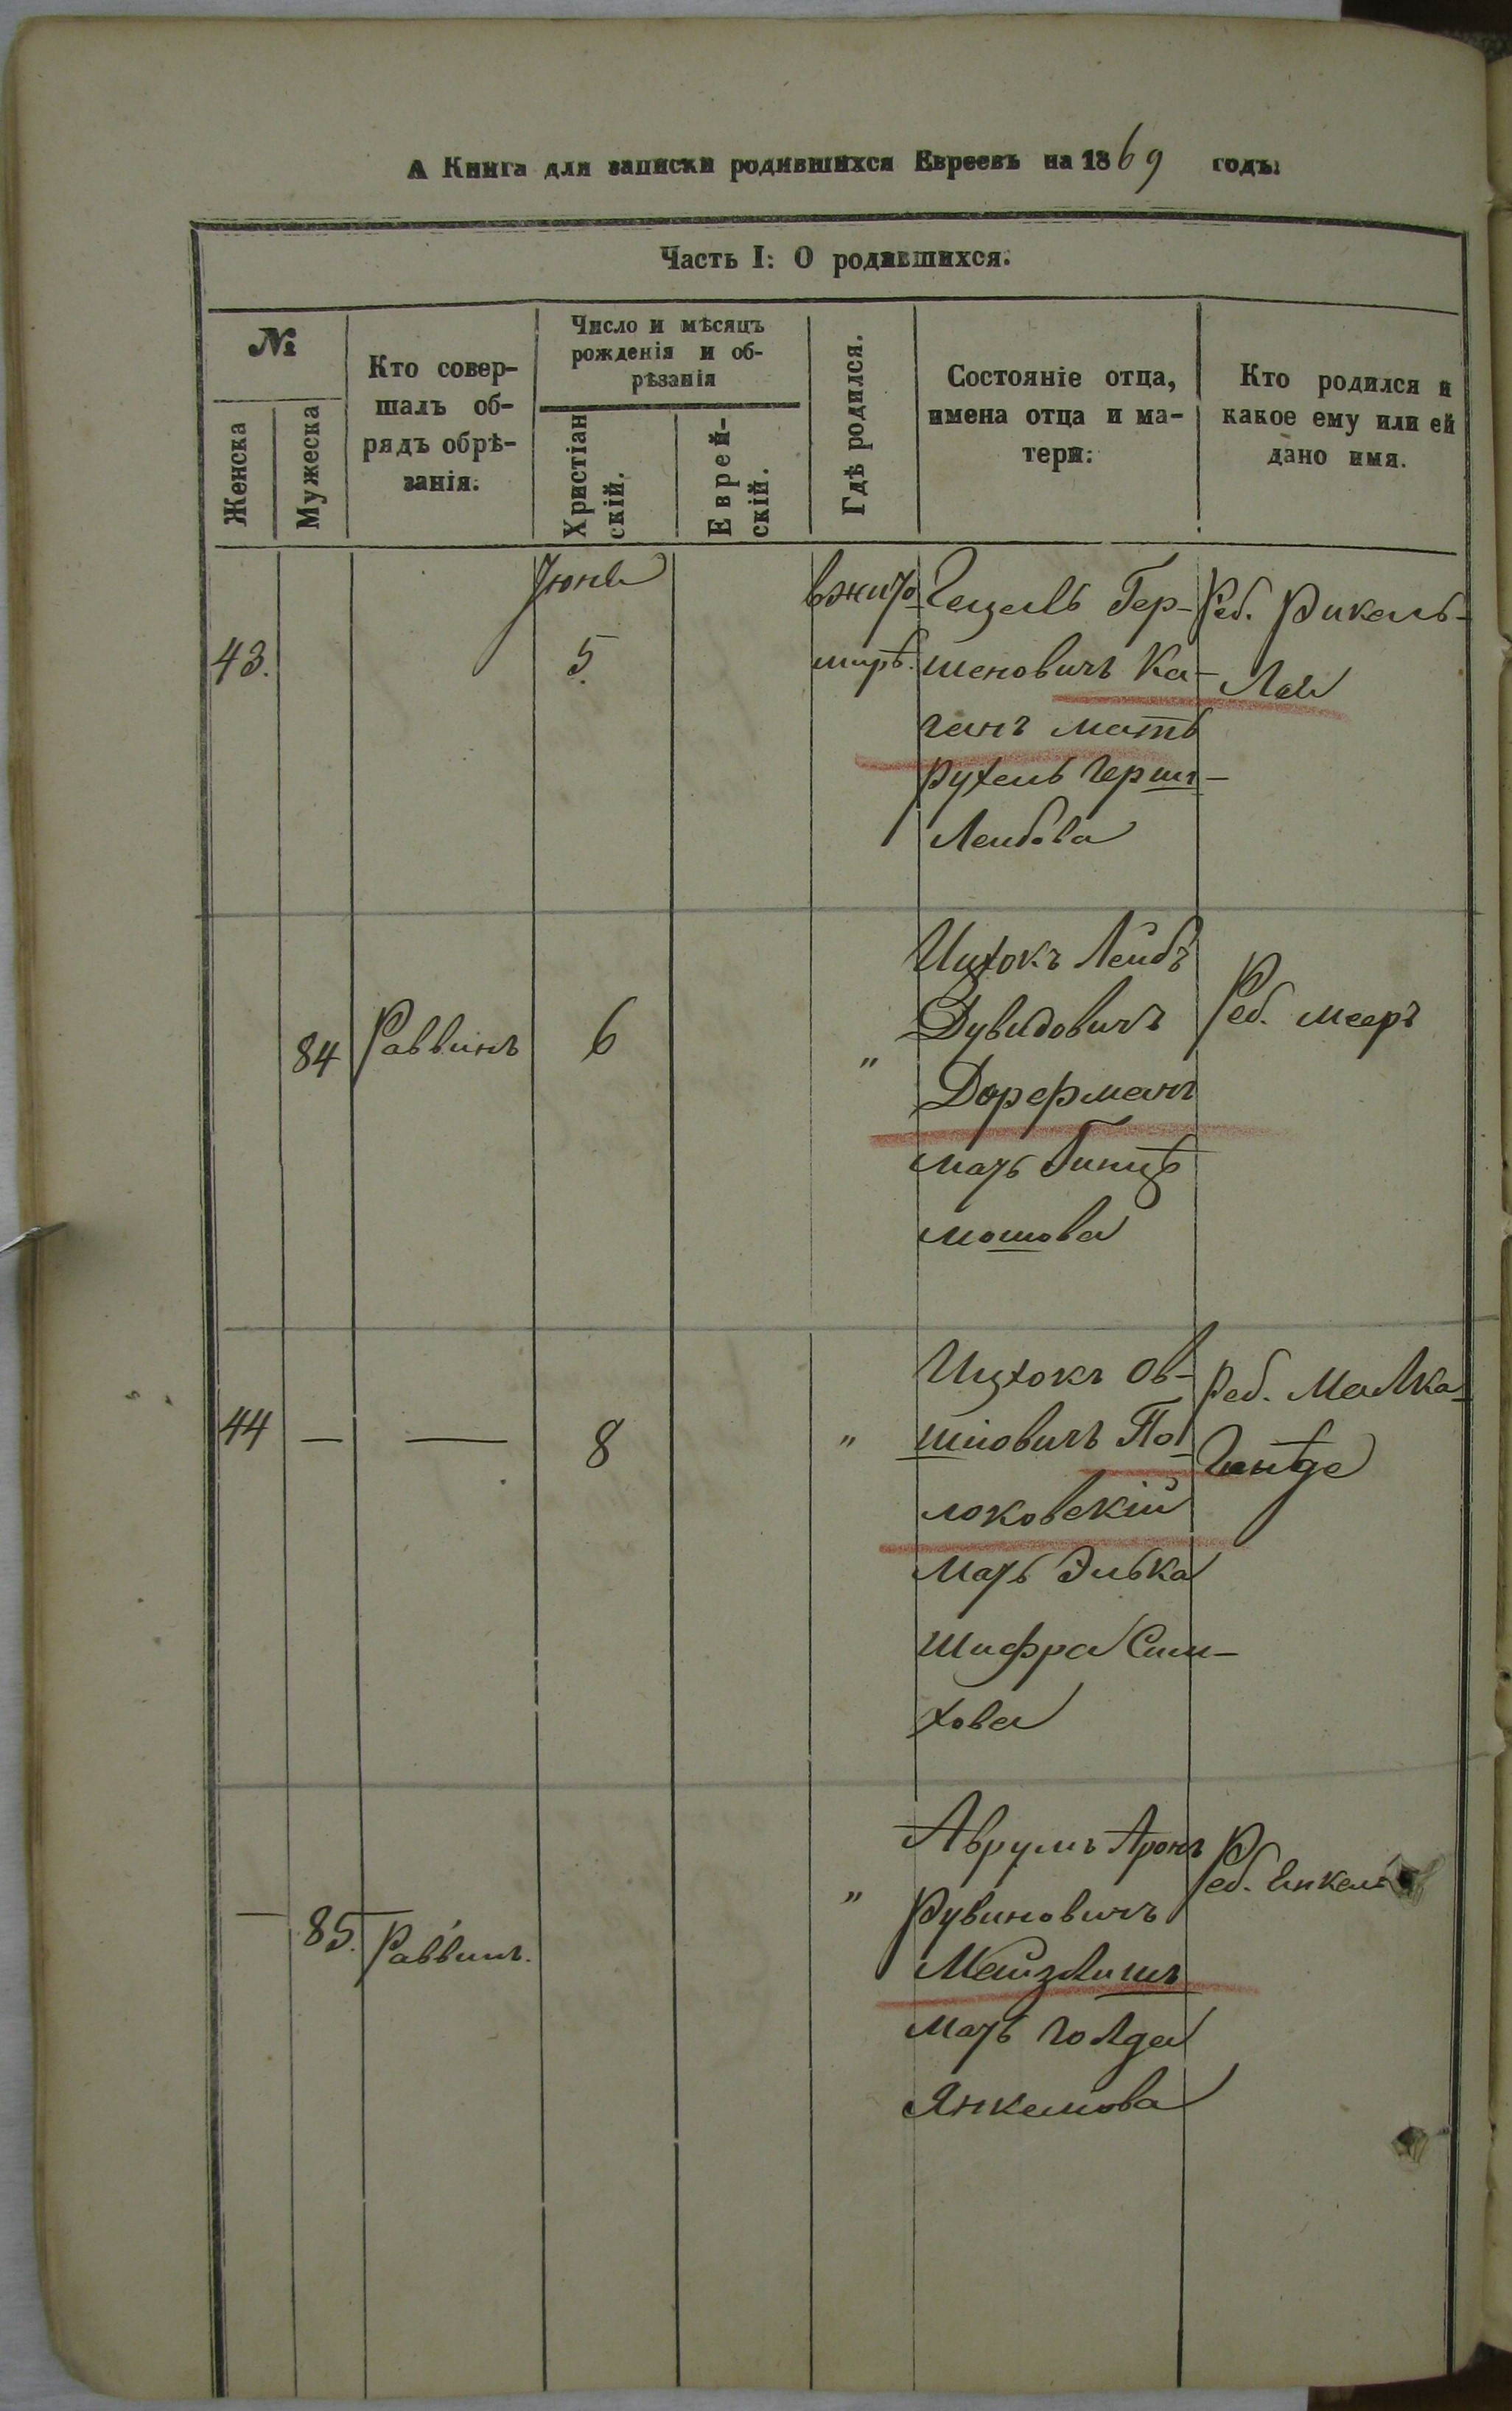 А Книга для записки родившихся Евреевъ на 1869 годъ.
Часть I: О родившихся.
№
Женска
Мужеска
Кто совер-
шалъ об-
рядъ обрѣ-
занія.
Число и мѣсяцъ
рожденія и об-
рѣзанія
Христіан
скій.
Еврей-
скій.
Гдѣ родился.
Состояніе отца,
имена отца и ма-
тери:
Кто родился и
какое ему или ей
дано имя.
Іюня
43.
5.
вжито
мирѣ.
Гецель Гер-
шеновичъ Ка-
ганъ мать
Рухель Герш-
Лейбова
Реб. Рикель-
Лая
84
Раввинъ
6
"
Ицхокъ Лейбъ
Дувидовичъ
Дорфманъ
мать
мошова
Реб. мееръ
44
—
—
8
"
Ицхокъ Ов-
шіовичъ По-
локовскій
мать Элька
Шифра Сим-
хова
Реб. Малка-
Генде
—
85.
Раввинъ.
"
Аврумъ Аронъ
Рувиновичъ
Майзлишъ
мать Голда
Янкелиова
Реб. Янкель